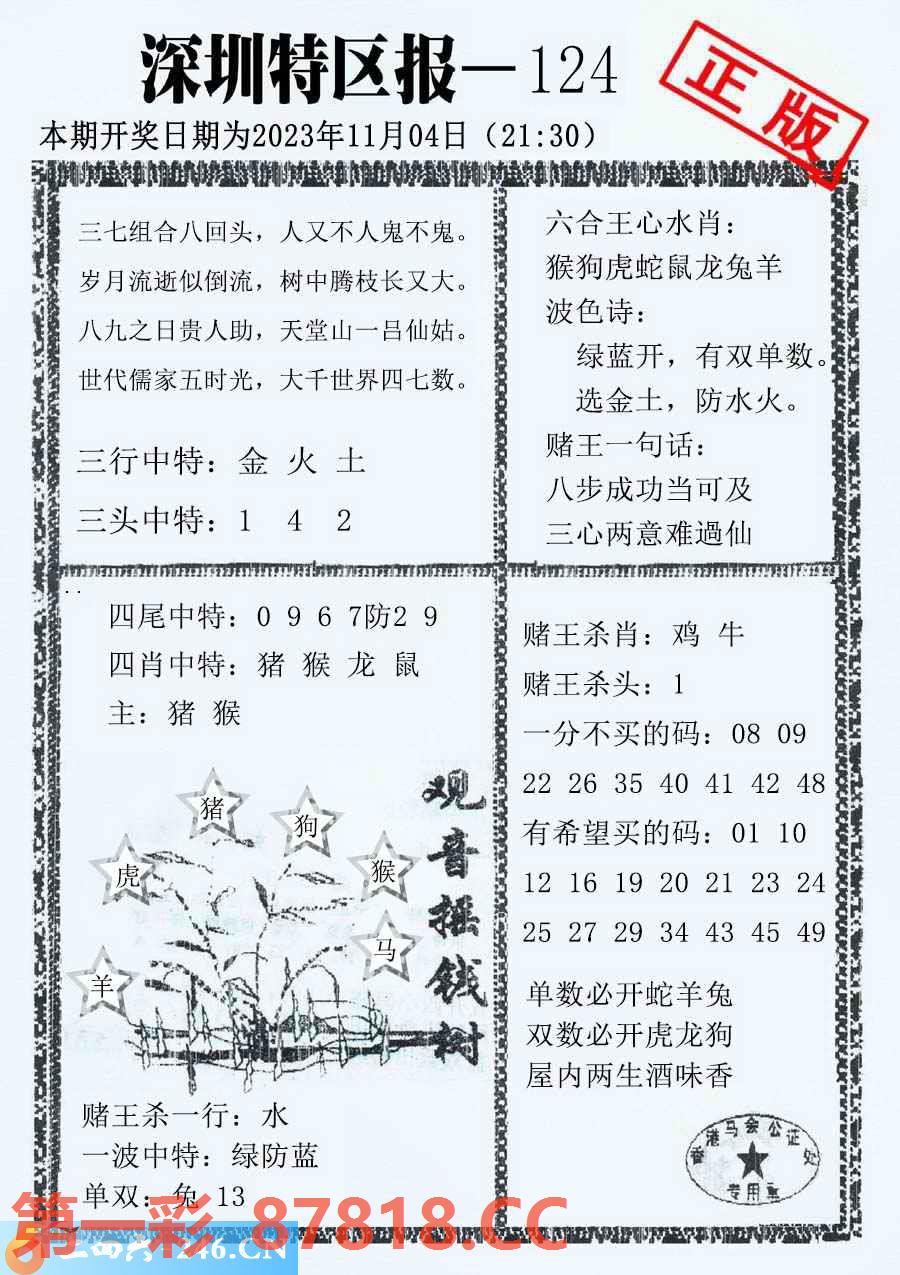 深圳特区报—124
正版
本期开奖日期为2023年11月04日（21:30）
三七组合八回头，人又不人鬼不鬼。
岁月流逝似倒流，树中腾枝长又大。
八九之日贵人助，天堂山一吕仙姑。
世代儒家五时光，大千世界四七数。
三行中特：金 火 土
三头中特：1 4 2
六合王心水肖：
猴狗虎蛇鼠龙兔羊
波色诗：
绿蓝开，有双单数。
选金土，防水火。
赌王一句话：
八步成功当可及
三心两意难過仙
四尾中特：0 9 6 7防2 9
四肖中特：猪 猴 龙 鼠
主：猪 猴
猪
狗
虎
猴
马
羊
观音摇钱树
赌王杀一行：水
一波中特：绿防蓝
单双：兔 13
赌王杀肖：鸡 牛
赌王杀头：1
一分不买的码：08 09
22 26 35 40 41 42 48
有希望买的码：01 10
12 16 19 20 21 23 24
25 27 29 34 43 45 49
单数必开蛇羊兔
双数必开虎龙狗
屋内两生酒味香
香港马会公证处
专用章
第一彩 87818.CC
246.CN